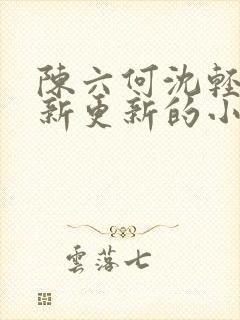 陳六何沈輕
新更新的小
雲落七